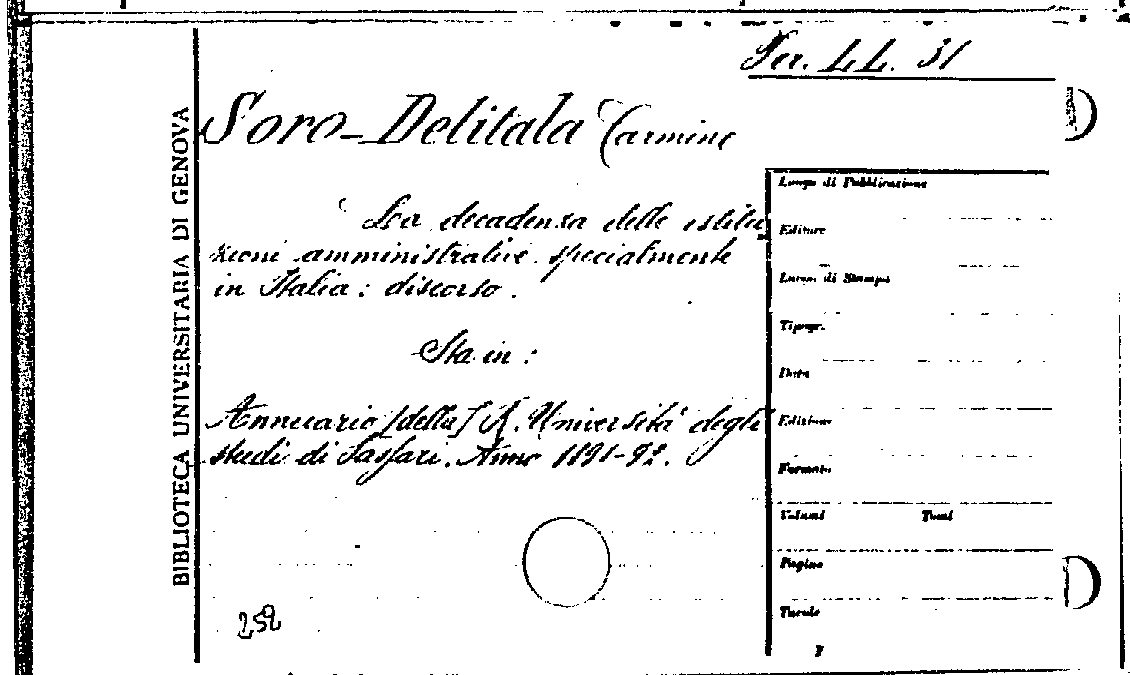 Ser. LL. 31
BIBLIOTECA UNIVERSITARIA DI GENOVA
Soro-Delitala Carmine
La decadenza delle istitu
zioni amministrative specialmente
in Italia: discorso.
Sta in:
Annuario [della] R. Università degli
studi di Sassari. Anno 1891-92.
252
Luogo di Pubblicazione
Editore
Luogo di Stampa
Tipogr.
Data
Edizione
Formato
Volumi Tomi
Pagine
Tavole